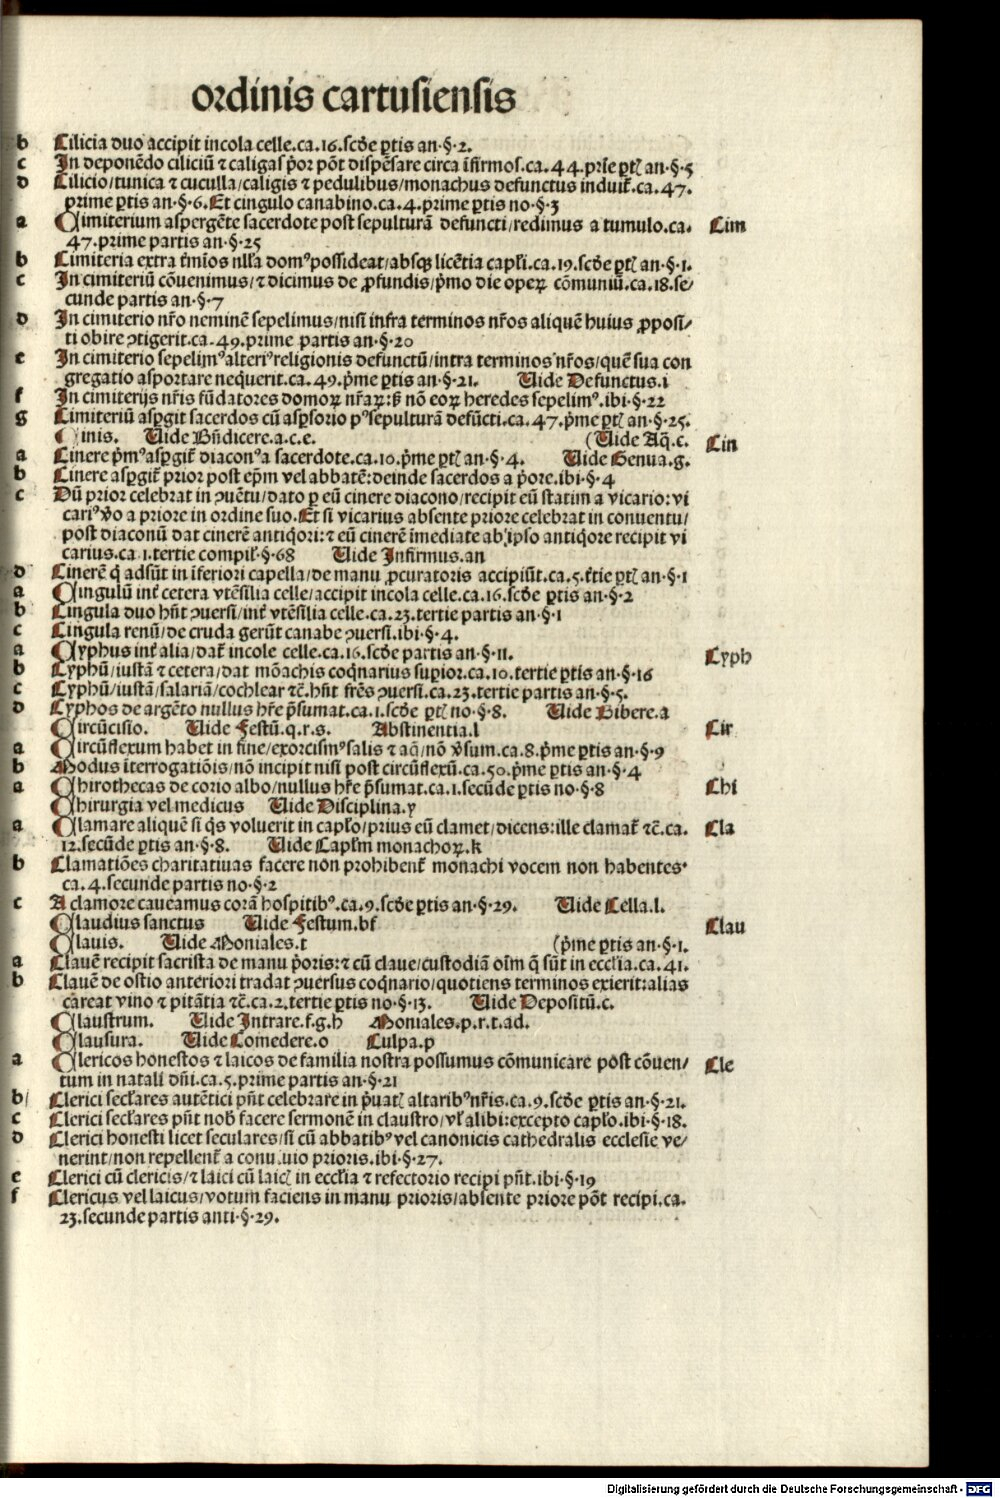 ordinis cartusiensis
b Cilicia duo accipit incola celle.ca.16.scđe ꝑtis an·§·2.
c In deponēdo ciliciū ⁊ caligas p̄or pōt dispēsare circa īfirmos.ca.44.prīe ꝑtꝭ an·§·5
d Cilicio/tunica ⁊ cuculla/caligis ⁊ pedulibus/monachus defunctus induit̄.ca.47.
prime ꝑtis an·§·6.Et cingulo canabino.ca.4.prime ꝑtis no·§·3
a Cimiterium aspergēte sacerdote post sepulturā defuncti/redimus a tumulo.ca. Cim
47.prime partis an·§·25
b Cimiteria extra t̄mīos nll'a domꝰ possideat/absqꝫ licētia capl̄i.ca.19.scđe ꝑtꝭ an·§·1.
c In cimiteriū cōuenimus/⁊ dicimus de ꝓfundis/p̄mo die operꝝ cōmuniū.ca.18.se/
cunde partis an·§·7
d In cimiterio nr̄o neminē sepelimus/nisi infra terminos nr̄os aliquē huius ꝓposi/
ti obire ↄtigerit.ca.49.prime partis an·§·20
e In cimiterio sepelimꝰ alteriꝰ religionis defunctū/intra terminos nr̄os/quē sua con
gregatio asportare nequerit.ca.49.p̄me ꝑtis an·§·21. Uide Defunctus.i
f In cimiterijs nr̄is fūdatores domorꝝ nr̄arꝝ:sꝫ nō eorꝝ heredes sepelimꝰ.ibi·§·22
g Cimiteriū asꝑgit sacerdos cū asꝑsorio pꝰ sepulturā defūcti.ca.47.p̄me ꝑtꝭ an·§·25.
Cinis. Uide Bn̄dicere.a.c.e. (Uide Aq̄.c. Cin
a Cinere p̄mꝰ asꝑgit̄ diaconꝰ a sacerdote.ca.10.p̄me ꝑtꝭ an·§·4. Uide Genua.g.
b Cinere asꝑgit̄ prior post ep̄m vel abbatē:deinde sacerdos a p̄ore.ibi·§·4
c Dū prior celebrat in ↄuētu/dato ꝑ eū cinere diacono/recipit eū statim a vicario:vi
cariꝰ v̄o a priore in ordine suo.Et si vicarius absente priore celebrat in conuentu/
post diaconū dat cinerē antiq̄ori:⁊ eū cinerē īmediate ab ipso antiqōre recipit vi
carius.ca.1.tertie compil̄·§·68 Uide Infirmus.an
d Cinerē q̄ adsūt in īferiori capella/de manu ꝓcuratoris accipiūt.ca.5.t̄tie ꝑtꝭ an·§·1
a Cingulū int̄ cetera vtēsilia celle/accipit incola celle.ca.16.scđe ꝑtis an·§·2
b Cingula duo hn̄t ↄuersi/int̄ vtēsilia celle.ca.23.tertie partis an·§·1
c Cingula renū/de cruda gerūt canabe ↄuersi.ibi·§·4.
a Cyphus int̄ alia/dat̄ incole celle.ca.16.scđe partis an·§·11. Cyph
b Cyphū/iustā ⁊ cetera/dat mōachis coq̄narius suꝑior.ca.10.tertie ꝑtis an·§·16
c Cyphū/iustā/salariā/cochlear ⁊c̄.hn̄t fr̄es ↄuersi.ca.23.tertie partis an·§·5.
d Cyphos de argēto nullus hr̄e p̄sumat.ca.1.scđe ꝑtꝭ no·§·8. Uide Bibere.a
Circūcisio. Uide Festū.q.r.s. Abstinentia.l Cir
a Circūflexum habet in fine/exorcismꝰ salis ⁊ aq̄/nō v̄sum.ca.8.p̄me ꝑtis an·§·9
b Modus īterrogatiōis/nō incipit nisi post circūflexū.ca.50.p̄me ꝑtis an·§·4
a Chirothecas de corio albo/nullus hr̄e p̄sumat.ca.1.secūde ꝑtis no·§·8 Chi
Chirurgia vel medicus Uide Disciplina.y
a Clamare aliquē si q̄s voluerit in capl̄o/prius eū clamet/dicens:ille clamat̄ ⁊c̄.ca. Cla
12.secūde ꝑtis an·§·8. Uide Capl̄m monachorꝝ.k
b Clamatiōes charitatiuas facere non prohibent̄ monachi vocem non habentes·
ca.4.secunde partis no·§·2
c A clamore caueamus corā hospitibꝰ.ca.9.scđe ꝑtis an·§·29. Uide Cella.l.
Claudius sanctus Uide Festum.bf Clau
Clauis. Uide Moniales.t (p̄me ꝑtis an·§·1.
a Clauē recipit sacrista de manu p̄oris:⁊ cū claue/custodiā oīm q̄ sūt in eccl̄ia.ca.41.
b Clauē de ostio anteriori tradat ↄuersus coq̄nario/quotiens terminos exierit:alias
careat vino ⁊ pitātia ⁊c̄.ca.2.tertie ꝑtis no·§·13. Uide Depositū.c.
Claustrum. Uide Intrare.f.g.h Moniales.p.r.t.ad.
Clausura. Uide Comedere.o Culpa.p
a Clericos honestos ⁊ laicos de familia nostra possumus cōmunicare post cōuen/ Cle
tum in natali dn̄i.ca.5.prime partis an·§·21
b Clerici secl̄ares autētici pn̄t celebrare in p̄uatꝭ altaribꝰ nr̄is.ca.9.scđe ꝑtis an·§·21.
c Clerici secl̄ares pn̄t nob̄ facere sermonē in claustro/vl̄ alibi:excepto capl̄o.ibi·§·18.
d Clerici honesti licet seculares/si cū abbatibꝰ vel canonicis cathedralis ecclesie ve/
nerint/non repellent̄ a conu.uio prioris.ibi·§·27.
e Clerici cū clericis/⁊ laici cū laicꝭ in eccl̄ia ⁊ refectorio recipi pn̄t.ibi·§·19
f Clericus vel laicus/votum faciens in manu prioris/absente priore pōt recipi.ca.
23.secunde partis anti·§·29.
Digitalisierung gefördert durch die Deutsche Forschungsgemeinschaft - DFG